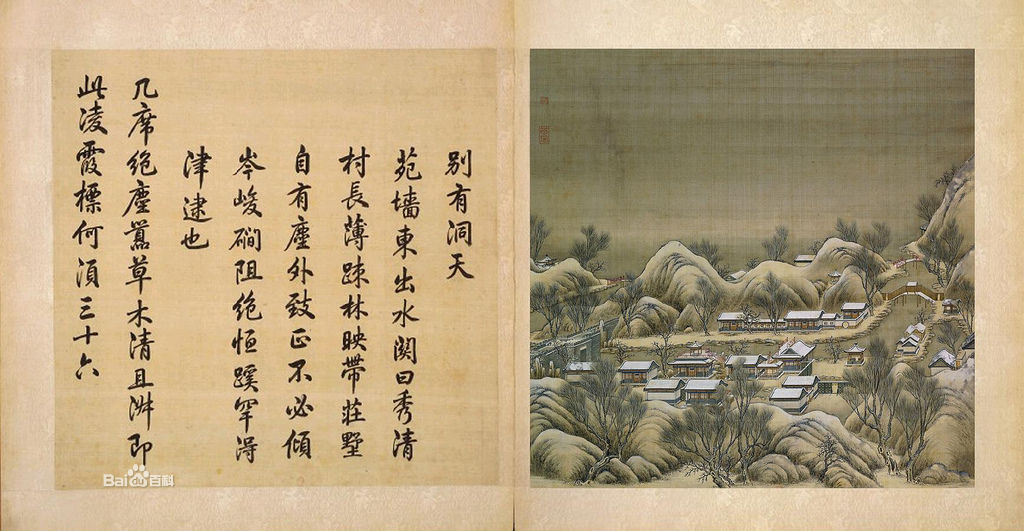 别有洞天
苑墻東出水関曰秀清
村長薄疎林映帶莊墅
自有塵外致正不必傾
岑峻磵阻絶恒蹊罕淂
津逮也
几席絶塵囂草木清且淑即
此凌霞標何須三十六
Bai du 百科